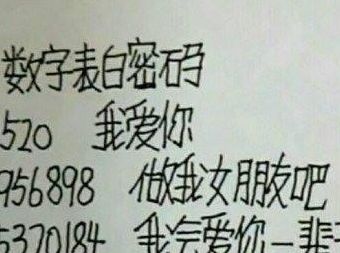 数字表白密码
520 我爱你
956898 做我女朋友吧
5370184 我会爱你一辈